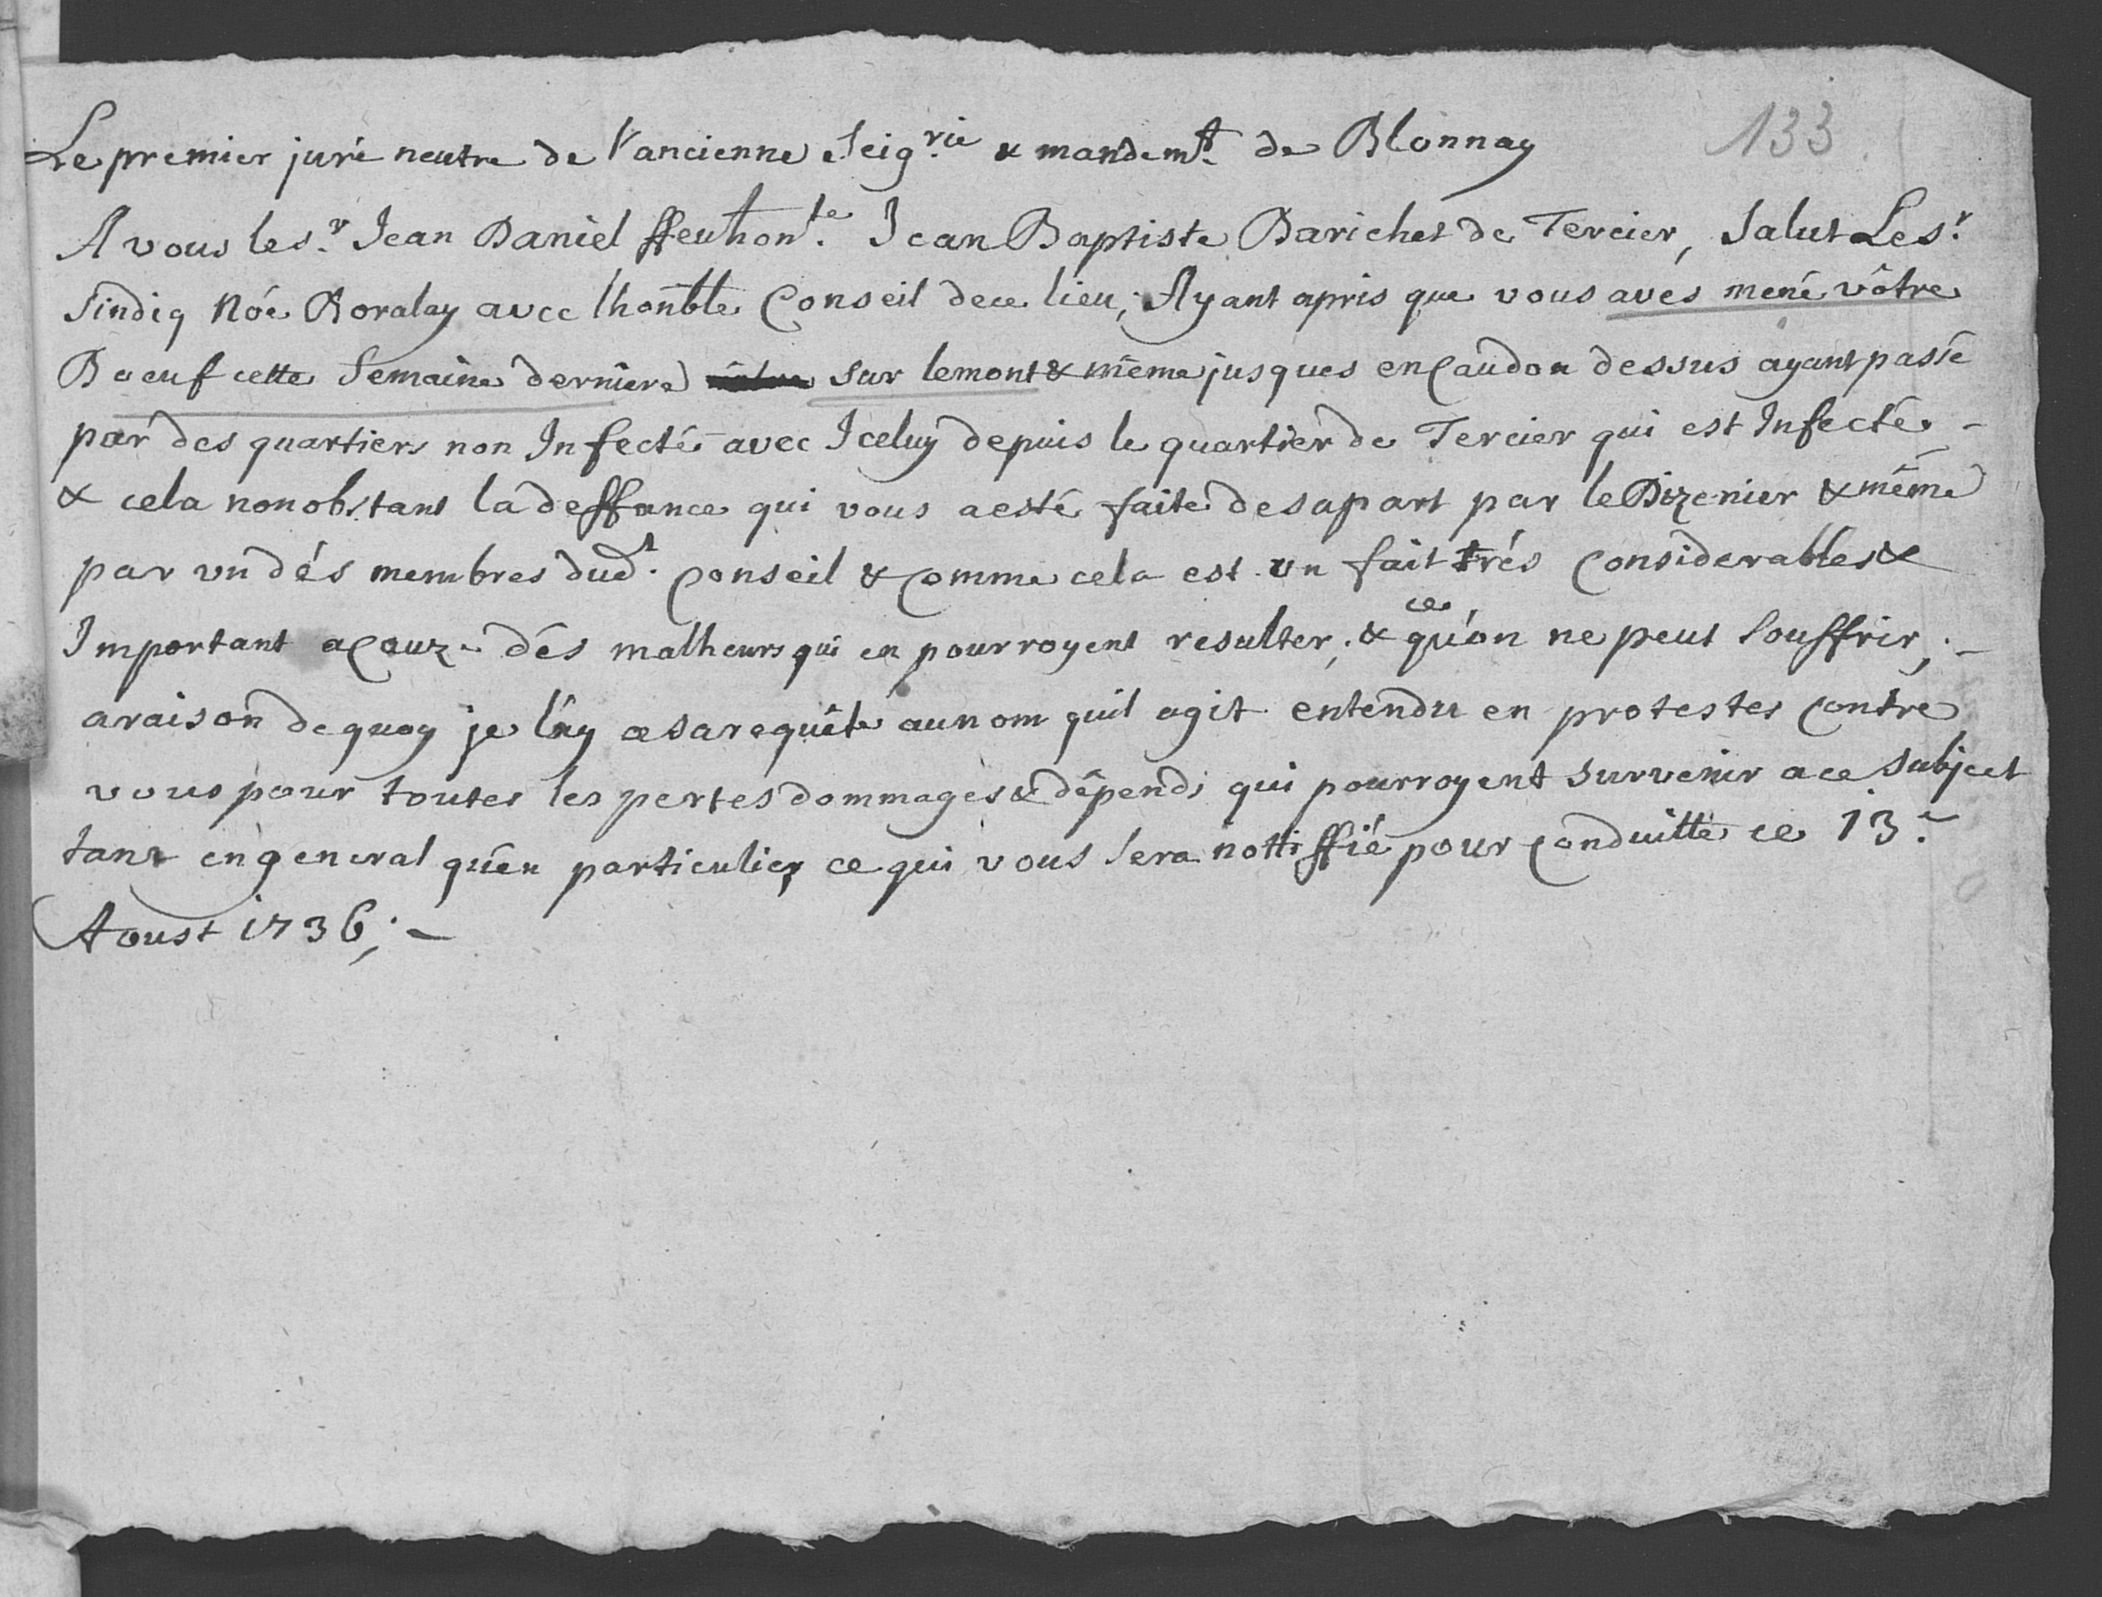 133
Le premier juré neutre de l'ancienne Seig.rie & mandem.t de Blonnay
A vous le s.r Jean Daniel ffeu hon.te Jean Baptiste Barichet de Tercier, Salut Le s.r
Sindiq Nóé Boralay avec lhonble Conseil de ce lieu; Ayant apris que vous avés mené vôtre
Boeuf cette Semaine derniere sur lemont & même jusques en Caudon dessus ayant passé
par des quartiers non Infecté avec Iceluy depuis le quartier de Tercier qui est Infecté -
& cela nonobstant la deffance qui vous a esté faite de sa part par le Dizenier & même
par un dés membres dud.t Conseil & Comme cela est un fait trés Considerables &
Important a Couze dés malheurs qui en pourroyent resulter; & ce qu'on ne peut Souffrir; -
a raison de quoy je l'ay a sa requête au nom quil agit entendu en protester Contre
vous pour toutes les pertes dommages & dêpends qui pourroyent survenir a ce subject
tant en general qu'en particulier ce qui vous Sera nottiffié pour Conduitte ce 13.e
Aoust 1736; -